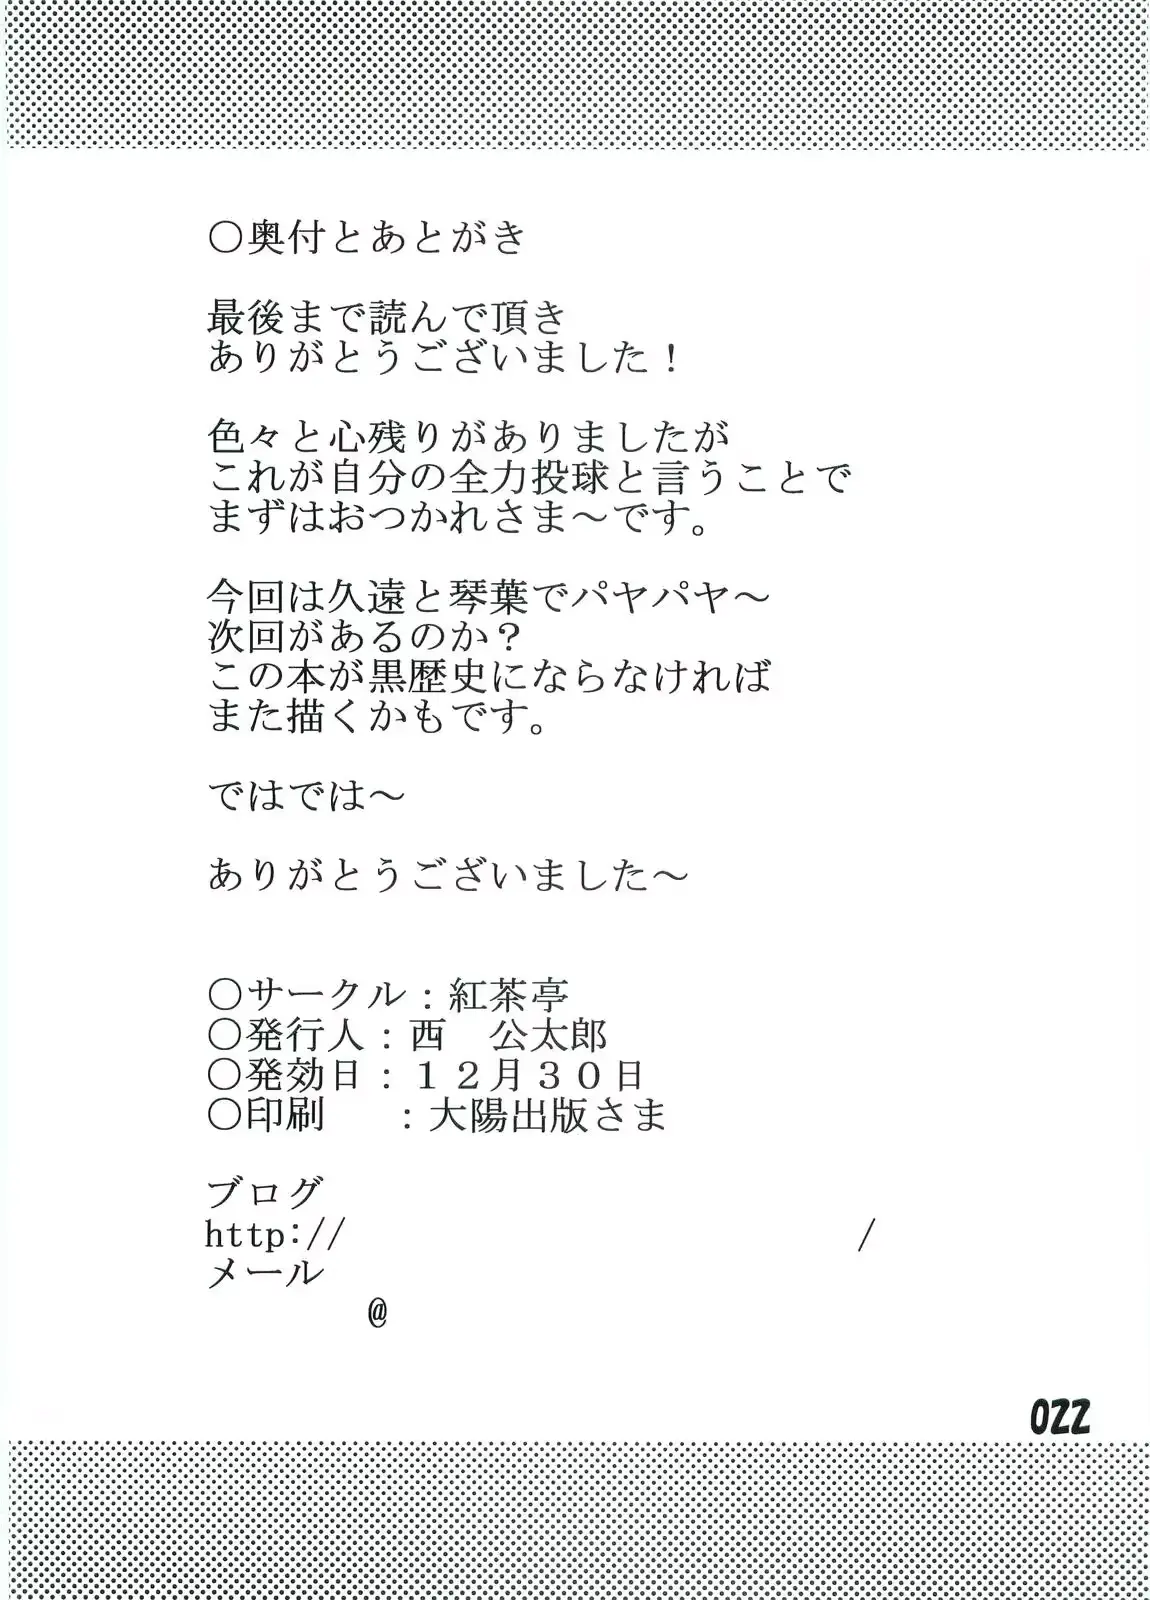 ○奥付とあとがき
最後まで読んで頂き
ありがとうございました！
色々と心残りがありましたが
これが自分の全力投球と言うことで
まずはおつかれさま～です。
今回は久遠と琴葉でパヤパヤ～
次回があるのか？
この本が黒歴史にならなければ
また描くかもです。
ではでは～
ありがとうございました～
○サークル：紅茶亭
○発行人：西　公太郎
○発効日：１２月３０日
○印刷　　：大陽出版さま
ブログ
http://　　　　　　　　　　　　　/
メール
@
022